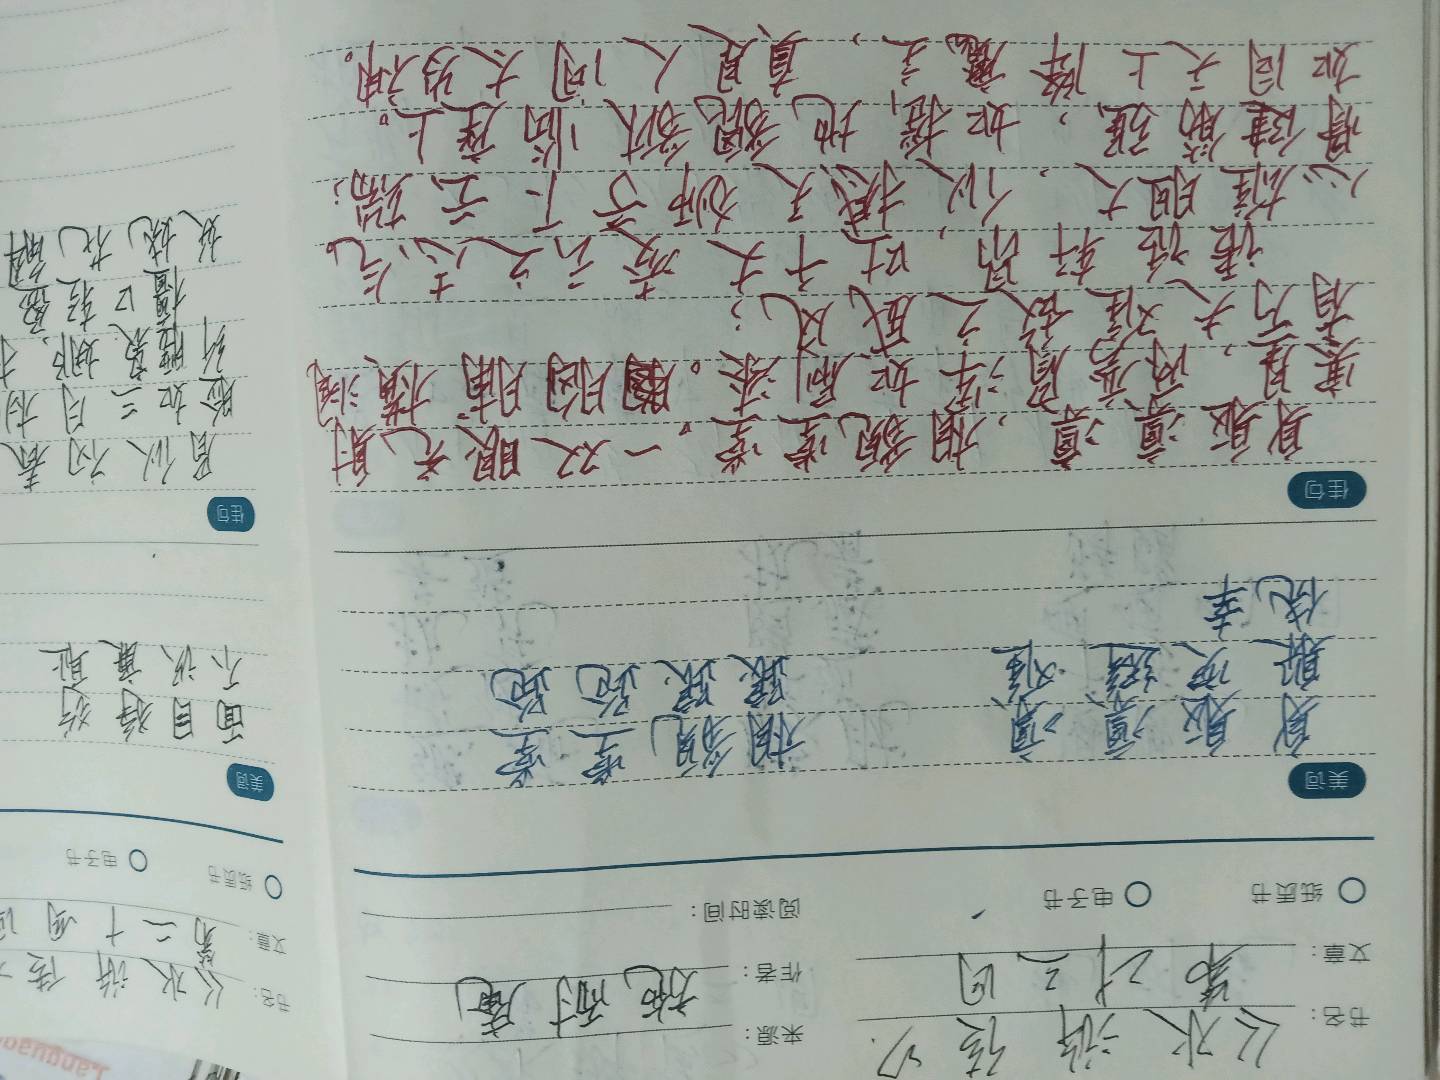 书名:《水浒传》
来源:
文章:第二十三回
作者:施耐庵
阅读时间:
纸质书 电子书
美词
身躯凛凛 相貌堂堂
躲灾避难 踉踉跄跄
侥幸
佳句
身躯凛凛,相貌堂堂。一双眼光射
寒星,两弯眉浑如刷漆。胸脯横阔,
有万夫难敌之威风;
语话轩昂,吐千丈凌云之志气。
心雄胆大,似撼天狮子下云端;
骨健筋强,如摇地貔貅临座上。
如同天上降魔主,真是人间太岁神。
书名:《水浒传
文章:第二十四回
纸质书 电子书
美词
面目狰狞
不识廉耻
佳句
眉似初春
脸如三月
纤腰袅娜,
檀口轻盈
妖娆花解